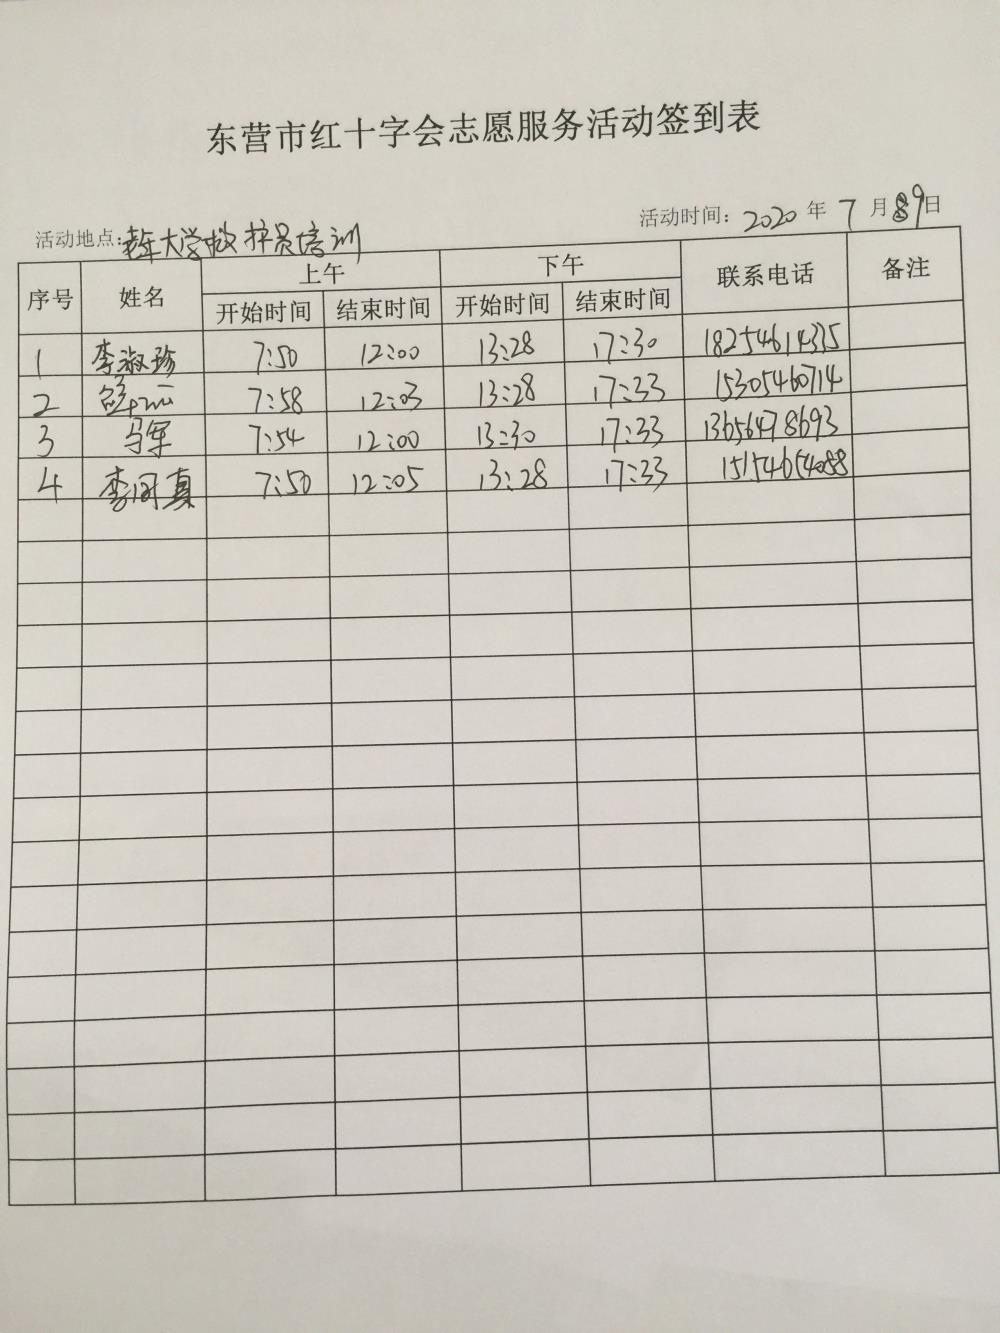 东营市红十字会志愿服务活动签到表
活动时间：2020 年 7 月 9 日
活动地点：老年大学救护员培训
序号 姓名 上午 下午 联系电话 备注
开始时间 结束时间 开始时间 结束时间
1 李淑珍 7:50 12:00 13:28 17:30 18254614335
2 7:58 12:03 13:28 17:33 15305460714
3 马军 7:54 12:00 13:30 17:33 13656478693
4 李同真 7:50 12:05 13:28 17:33 15154654088